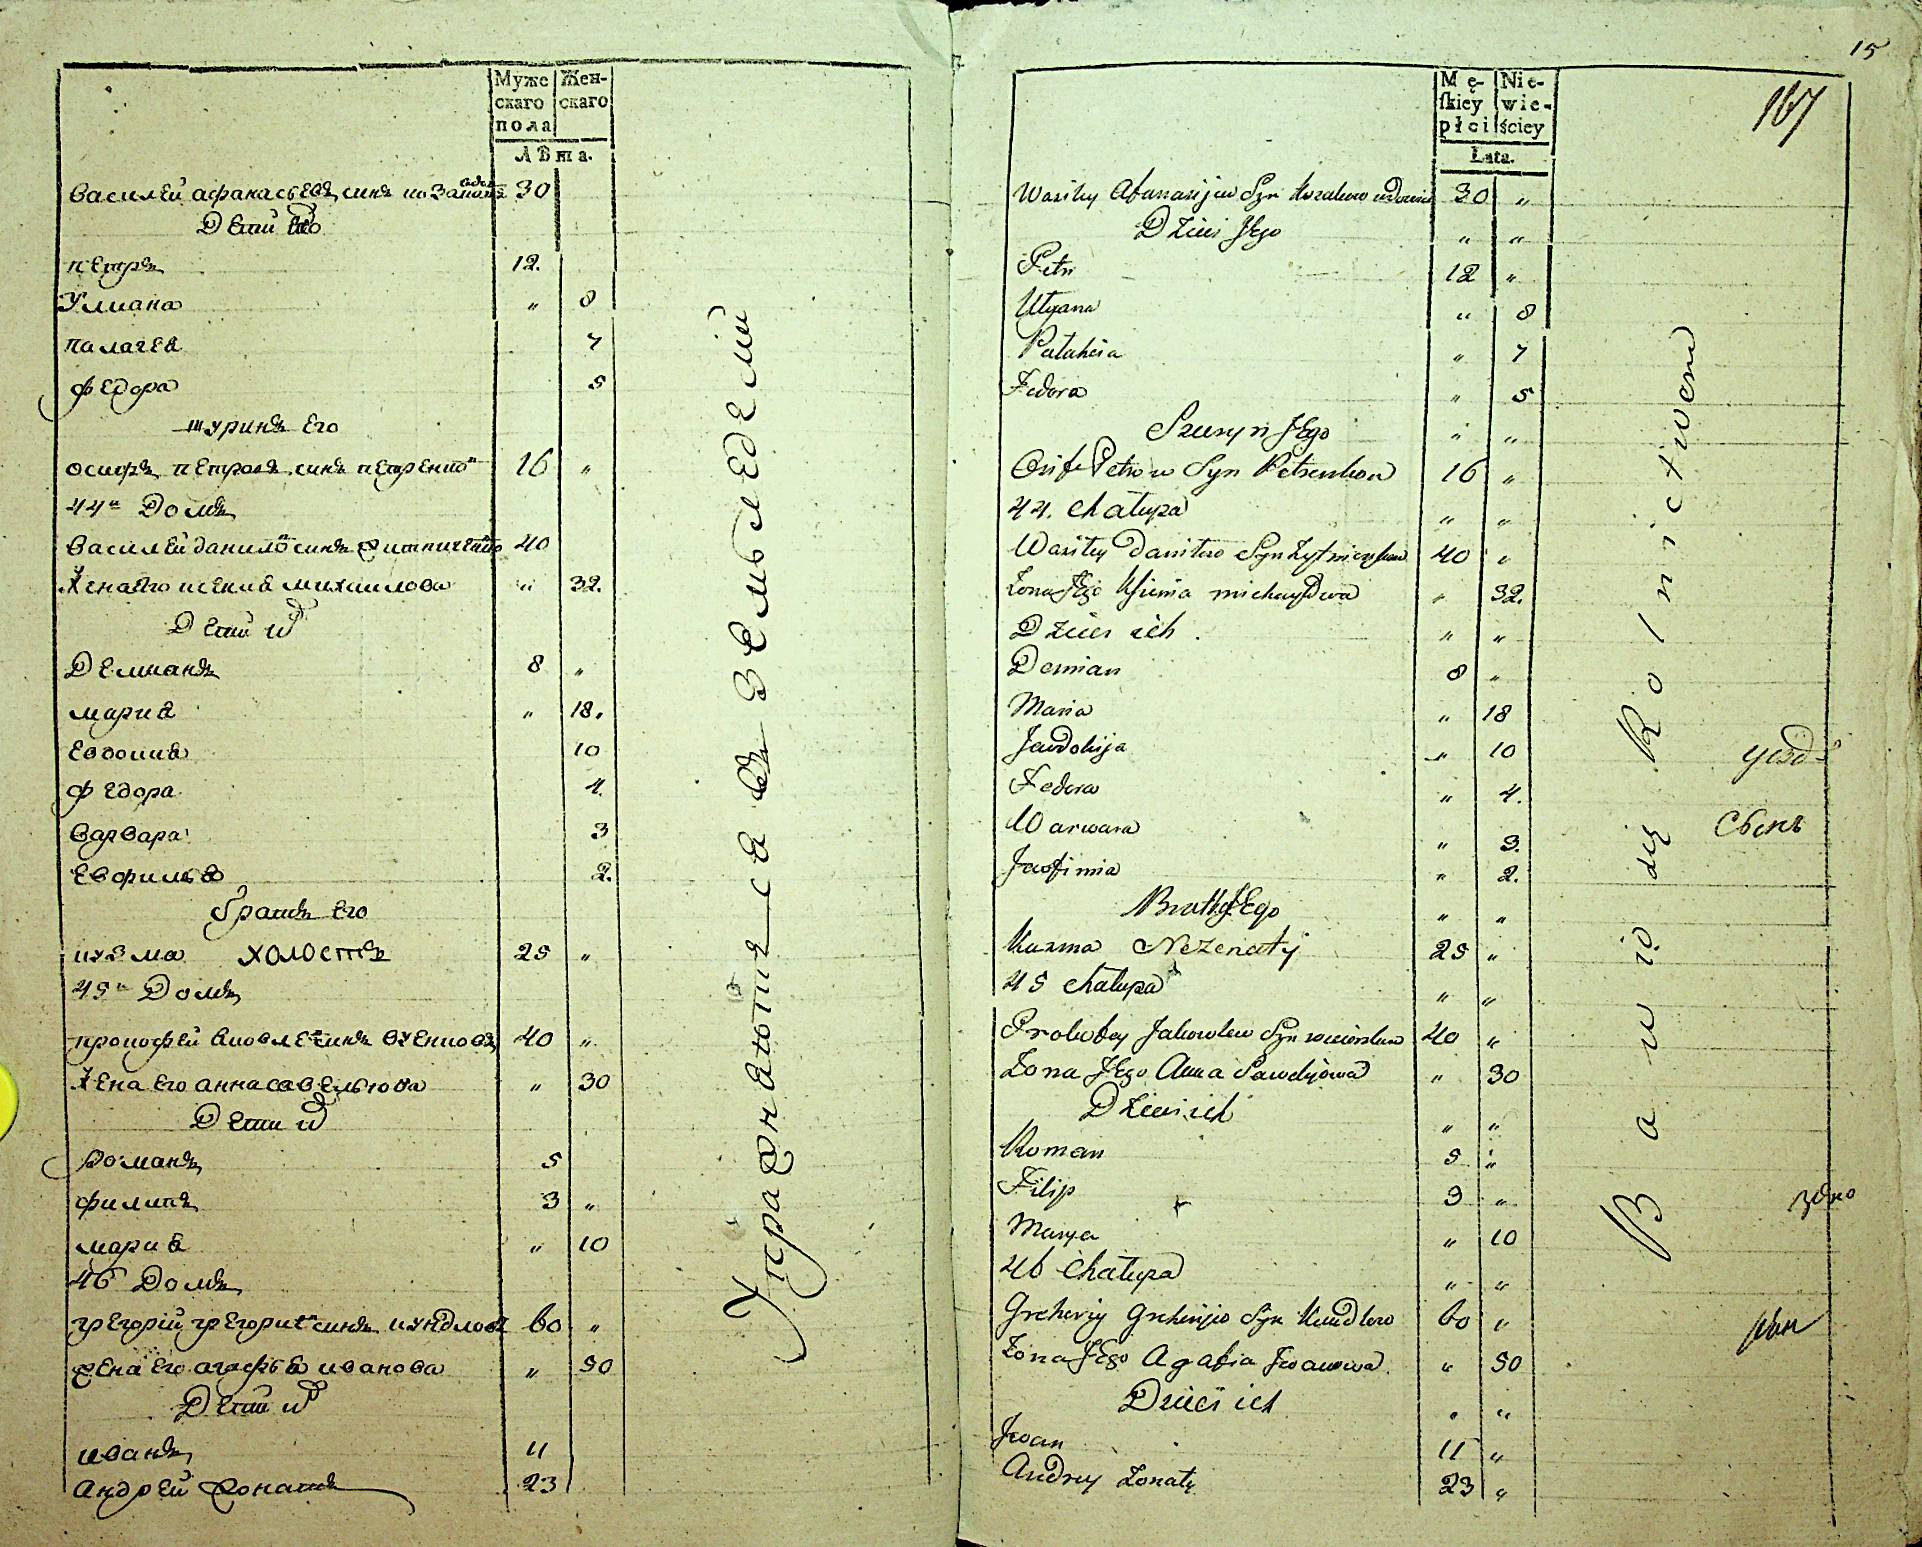 Муже скаго пола
Жен- скаго
ЛѢта.
василѣй афанасьевъ синъ 30
Дети его
петръ 12.
Улиана „ 8
палагея 7
федора 5
шуринъ его
осифъ петровъ синъ петренко 16 „
44й Домъ
василѣй данило синъ 40
Жена его ксения михаилова „ 32.
Дети их
Демианъ 8 „
мария „ 18.
Евдокия 10
федора 4.
варвара 3
Евфимья 2.
братъ его
кузма холостъ 25 „
45й Домъ
прокофей яковлевъ синъ 40 „
Жена его анна савельева „ 30
Дети их
романъ 5
филипъ 3 „
мария „ 10
46 Домъ
григорий григориевъ синъ кундловъ 60 „
жена его агафья иванова „ 50
Дети их
иванъ 11
Андрей жонатъ 23
Упражняются въ земледелий
15
167
Mę- skiey płci
Nie- wie- ściey
Lata.
Wasiley Afanasijew Syn 30 „
Dzieci Jego „ „
Petr 12 „
Ulyana „ 8
Palaheia „ 7
Fedora „ 5
Szuryn Jego „ „
Osif Petrow Syn Petrenkow 16 „
44. chałupa „ „
Wasiley Daniłow Syn 40 „
Żona Jego Xsienia michayłowa „ 32.
Dzieci ich. „ „
Demian 8 „
Maria „ 18
Jewdokija „ 10
Fedora „ 4.
Warwara „ 3.
Jewfimia „ 2.
Brat Jego „ „
Kuzma Nezenatÿ 25 „
45 chałupa „ „
Prokofey Jakowlew Syn 40 „
Żona Jego Anna Sawelijowa „ 30
Dzieci ich „ „
Roman 5 „
Filip 3 „
Marya „ 10
46 chałupa „ „
Grehoriy Grehorijew Syn Kundlow 60 „
Żona Jego Agafia Jwanowa „ 50
Dzieci ich „ „
Jwan 11 „
Andrey żonatÿ 23 „
Bawią się Rolnictwem